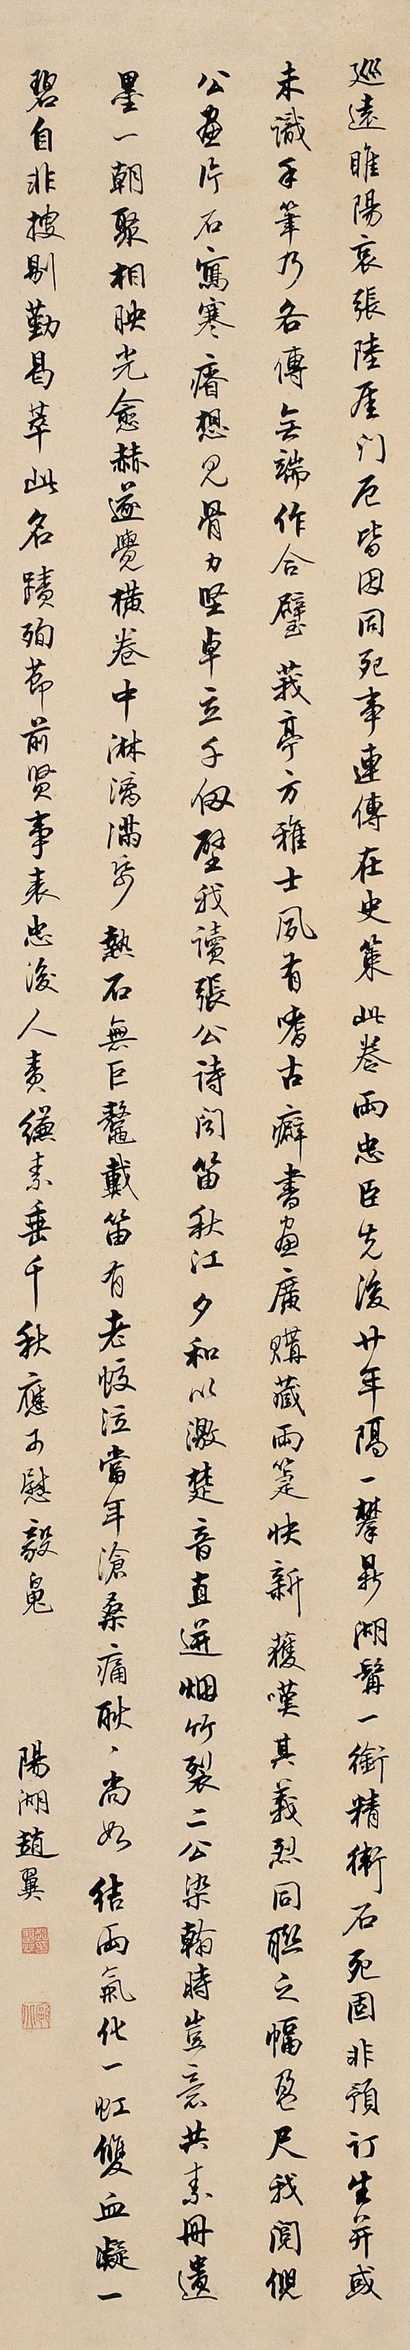 巡遠睢陽哀張陸厓门厄皆因同死事連傳在史策此卷兩忠臣先後廿年隔一攀鼎湖髯一銜精衛石死固非預订生并或
未識手筆乃各傳無端作合璧莪亭方雅士夙有嗜古癖書画廣購藏兩箑快新獲嘆其義烈同聯之幅盈尺我閲倪
公画片石寫寒瘠想见骨力堅卓立千仞壁我讀張公诗问笛秋江夕和以激楚音直迸烟竹裂二公染翰時豈意共素冊遺
墨一朝聚相映光愈赫遂覺横卷中淋漓满纸熱石無巨鼇戴笛有老蛟泣當年滄桑痛耿耿尚如結兩氣化一虹雙血凝一
碧自非搜剔勤曷萃此名蹟殉節前贤事表忠後人责縑素垂千秋應可慰毅鬼
陽湖趙翼